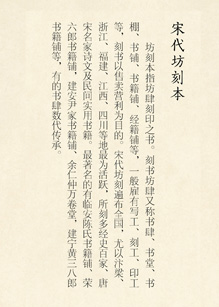 宋代坊刻本
坊刻本指坊肆刻印之书。刻书坊肆又称书肆、书堂、书
棚、书铺、书籍铺、经籍铺等，一般雇有写工、刻工、印工
等，刻书以售卖营利为目的。宋代坊刻遍布全国，尤以汴梁、
浙江、福建、江西、四川等地最为活跃，所刻多经史百家、唐
宋名家诗文及民间实用书籍。最著名的有临安陈氏书籍铺、荣
六郎书籍铺，建安尹家书籍铺、余仁仲万卷堂，建宁黄三八郎
书籍铺等，有的书肆数代传承。